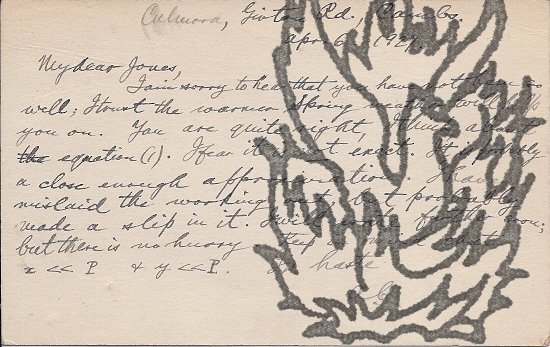 Culmora, Girton Rd., Cambs.
Apr 6, 1927
My dear Jones,
I am sorry to hear that you have not been so
well; I trust the warmer Spring weather will help
you on. You are quite right, I think, about
the equation (1). I fear it isn't exact. It is probably
a close enough approximation. I have
mislaid the working out, but probably
made a slip in it. I will for you;
but there is no hurry. Keep in mind that
x << P & y << P. In haste